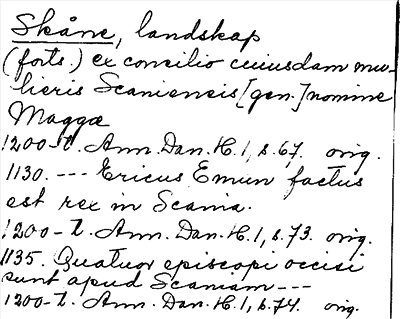 Skåne, landskap
(forts.) ex concilio cuiusdam mu-
lieris Scaniensis [gen.] nomine
Maggæ
1200-t. Ann. Dan. H. 1, s. 67. orig.
1130. --- Ericus Emun factus
est rex in Scania.
1200-t. Ann. Dan. H. 1, s. 73. orig.
1135. Quatuor episcopi occisi
sunt apud Scaniam ---
1200-t. Ann. Dan. H. 1, s. 74. orig.